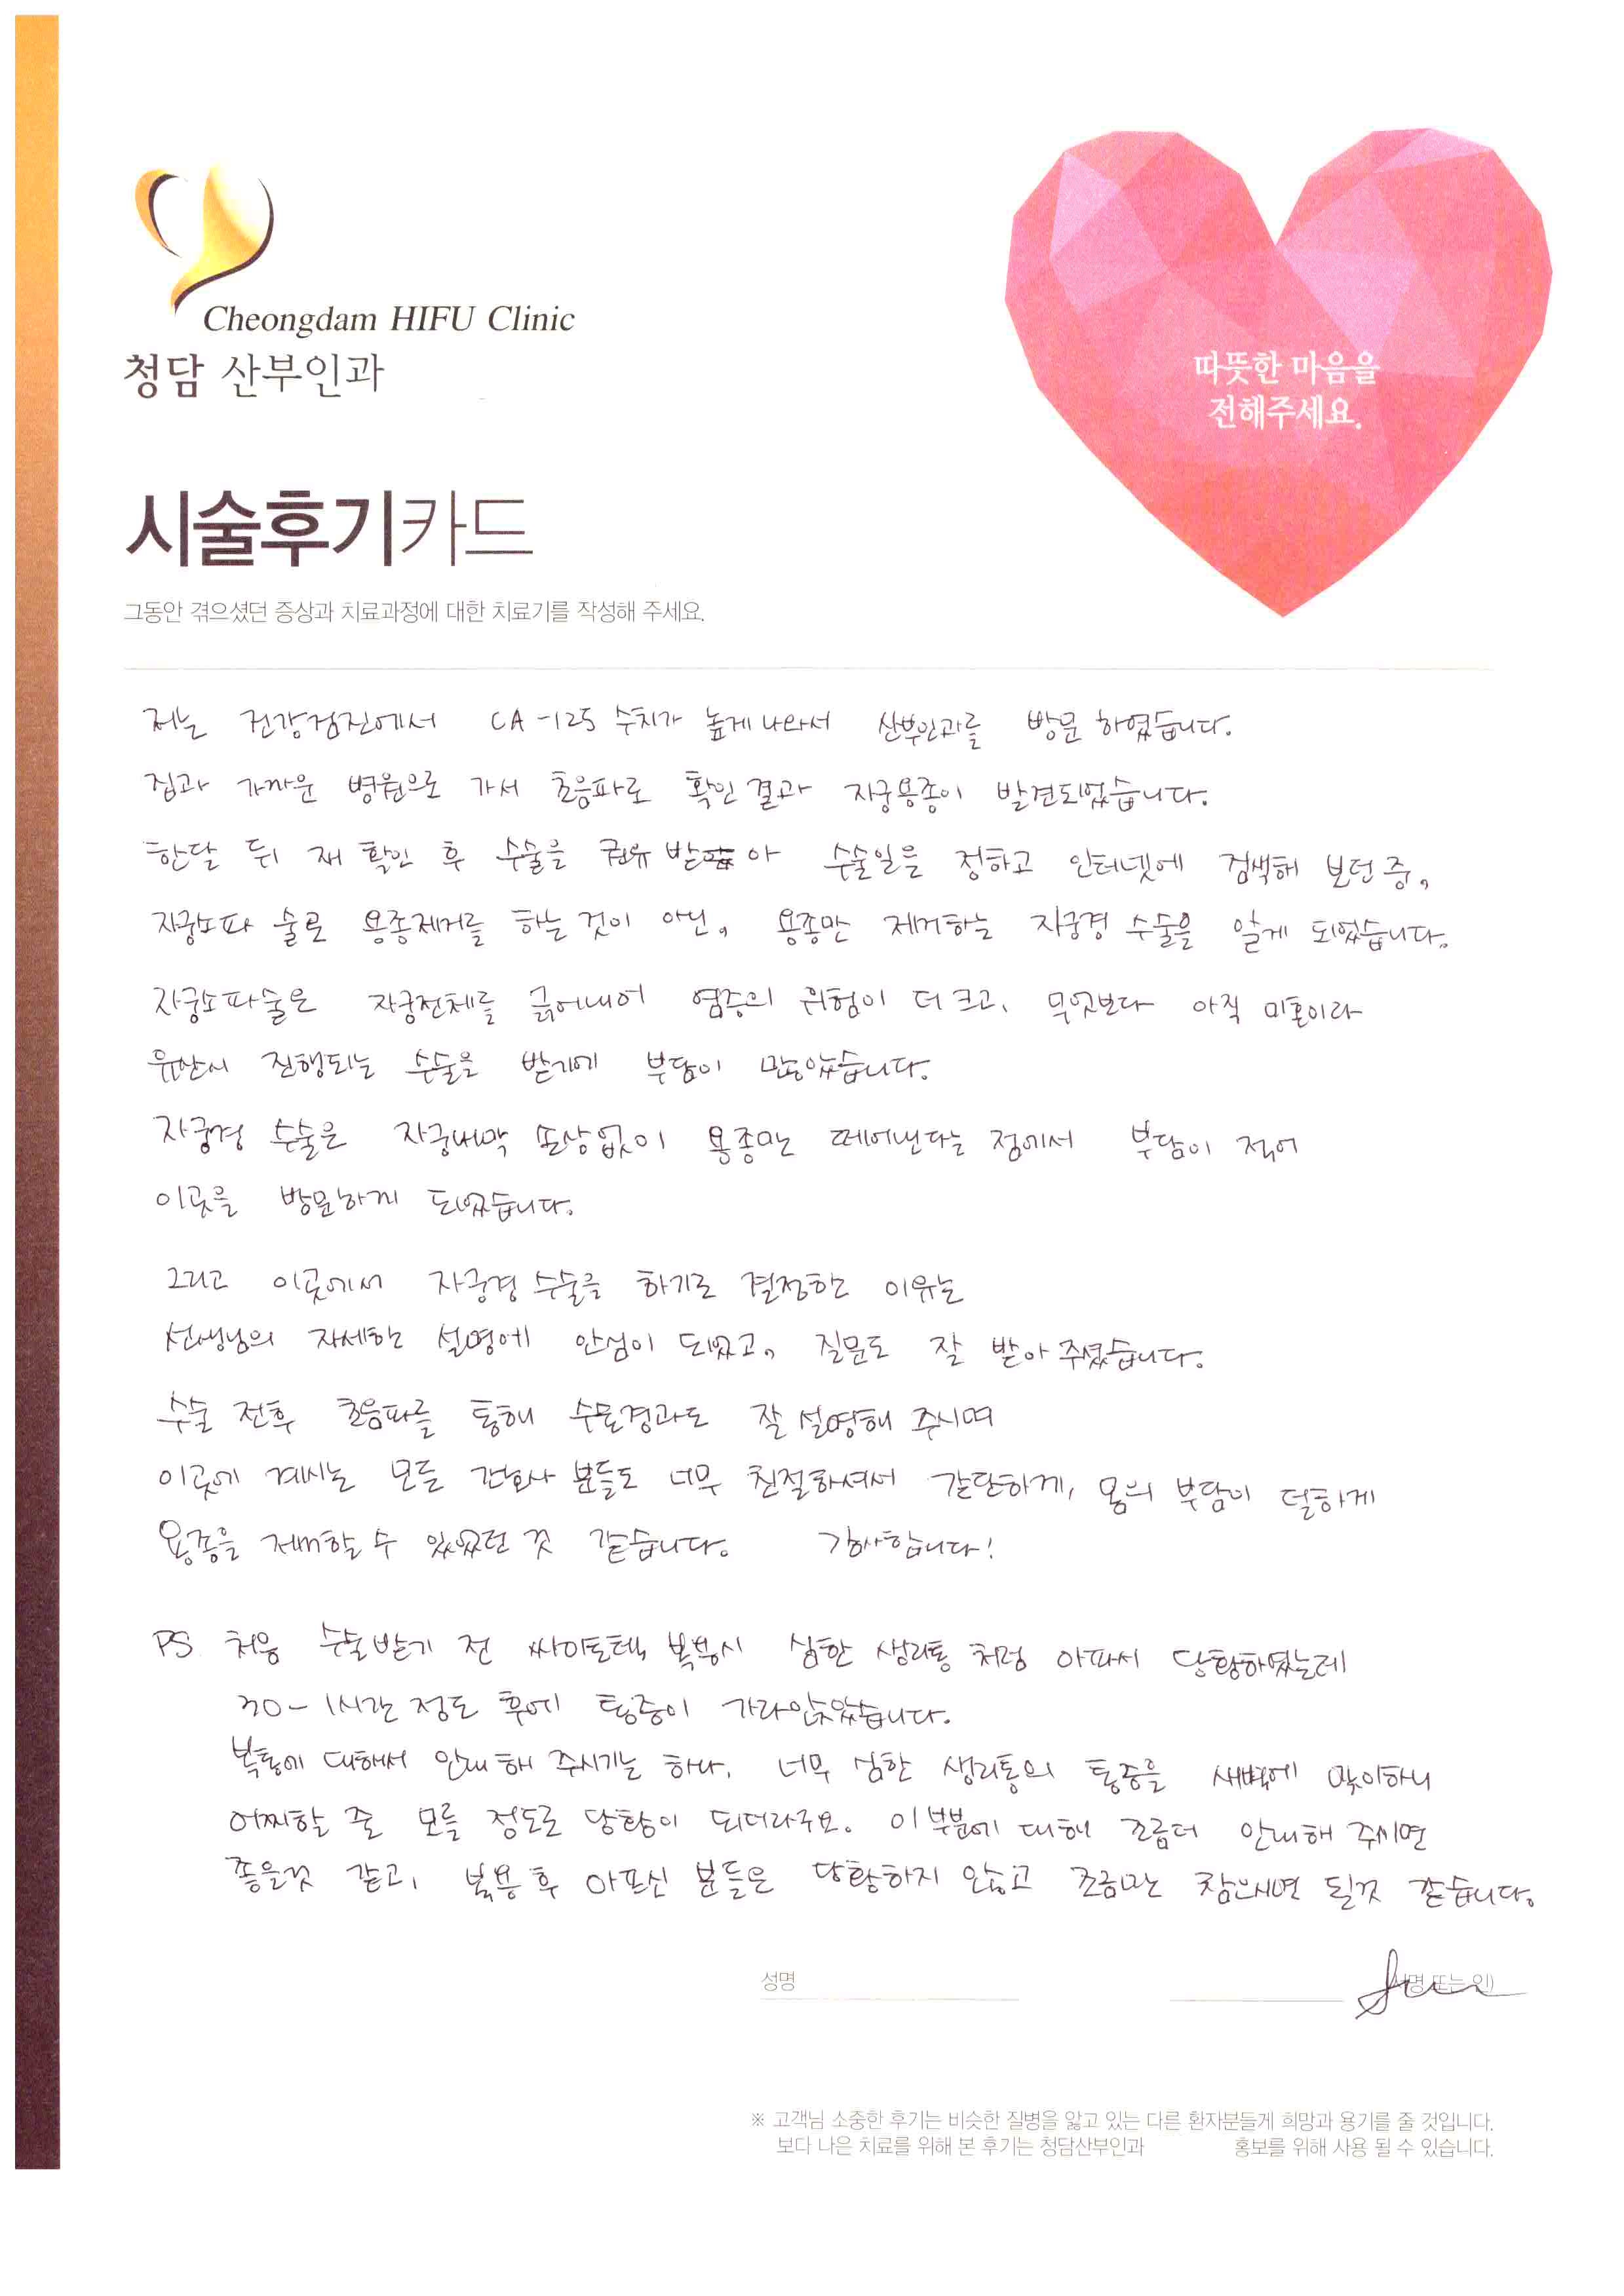 Cheongdam HIFU Clinic
청담 산부인과
따뜻한 마음을
전해주세요.
시술후기카드
그동안 겪으셨던 증상과 치료과정에 대한 치료기를 작성해 주세요.
저는 건강검진에서 CA-125 수치가 높게 나와서 산부인과를 방문 하였습니다.
집과 가까운 병원으로 가서 초음파로 확인 결과 자궁용종이 발견되었습니다.
한달 뒤 재 확인 후 수술을 권유 받아 수술일을 정하고 인터넷에 검색해 보던 중,
자궁소파 술로 용종제거를 하는 것이 아닌, 용종만 제거하는 자궁경 수술을 알게 되었습니다.
자궁소파술은 자궁전체를 긁어내어 염증의 위험이 더 크고, 무엇보다 아직 미혼이라
유산시 진행되는 수술을 받기에 부담이 많았습니다.
자궁경 수술은 자궁내막 손상없이 용종만 떼어낸다는 점에서 부담이 적어
이곳을 방문하게 되었습니다.
그리고 이곳에서 자궁경 수술을 하기로 결정한 이유는
선생님의 자세한 설명에 안심이 되었고, 질문도 잘 받아 주셨습니다.
수술 전후 초음파를 통해 수술경과도 잘 설명해 주시며
이곳에 계시는 모든 간호사 분들도 너무 친절하셔서 간단하게, 몸의 부담이 덜하게
용종을 제거할 수 있었던 것 같습니다. 감사합니다!
PS. 처음 수술받기 전 싸이토텍 복용시 심한 생리통 처럼 아파서 당황하였는데
30-1시간 정도 후에 통증이 가라앉았습니다.
복통에 대해서 안내 해 주시기는 하나, 너무 심한 생리통의 통증을 새벽에 맞이하니
어찌할 줄 모를 정도로 당황이 되더라구요. 이 부분에 대해 조금더 안내해 주시면
좋을것 같고, 복용 후 아프신 분들은 당황하지 않고 조금만 참으시면 될것 같습니다.
성명
(서명 또는 인)
※ 고객님 소중한 후기는 비슷한 질병을 앓고 있는 다른 환자분들게 희망과 용기를 줄 것입니다.
보다 나은 치료를 위해 본 후기는 청담산부인과 홍보를 위해 사용 될 수 있습니다.